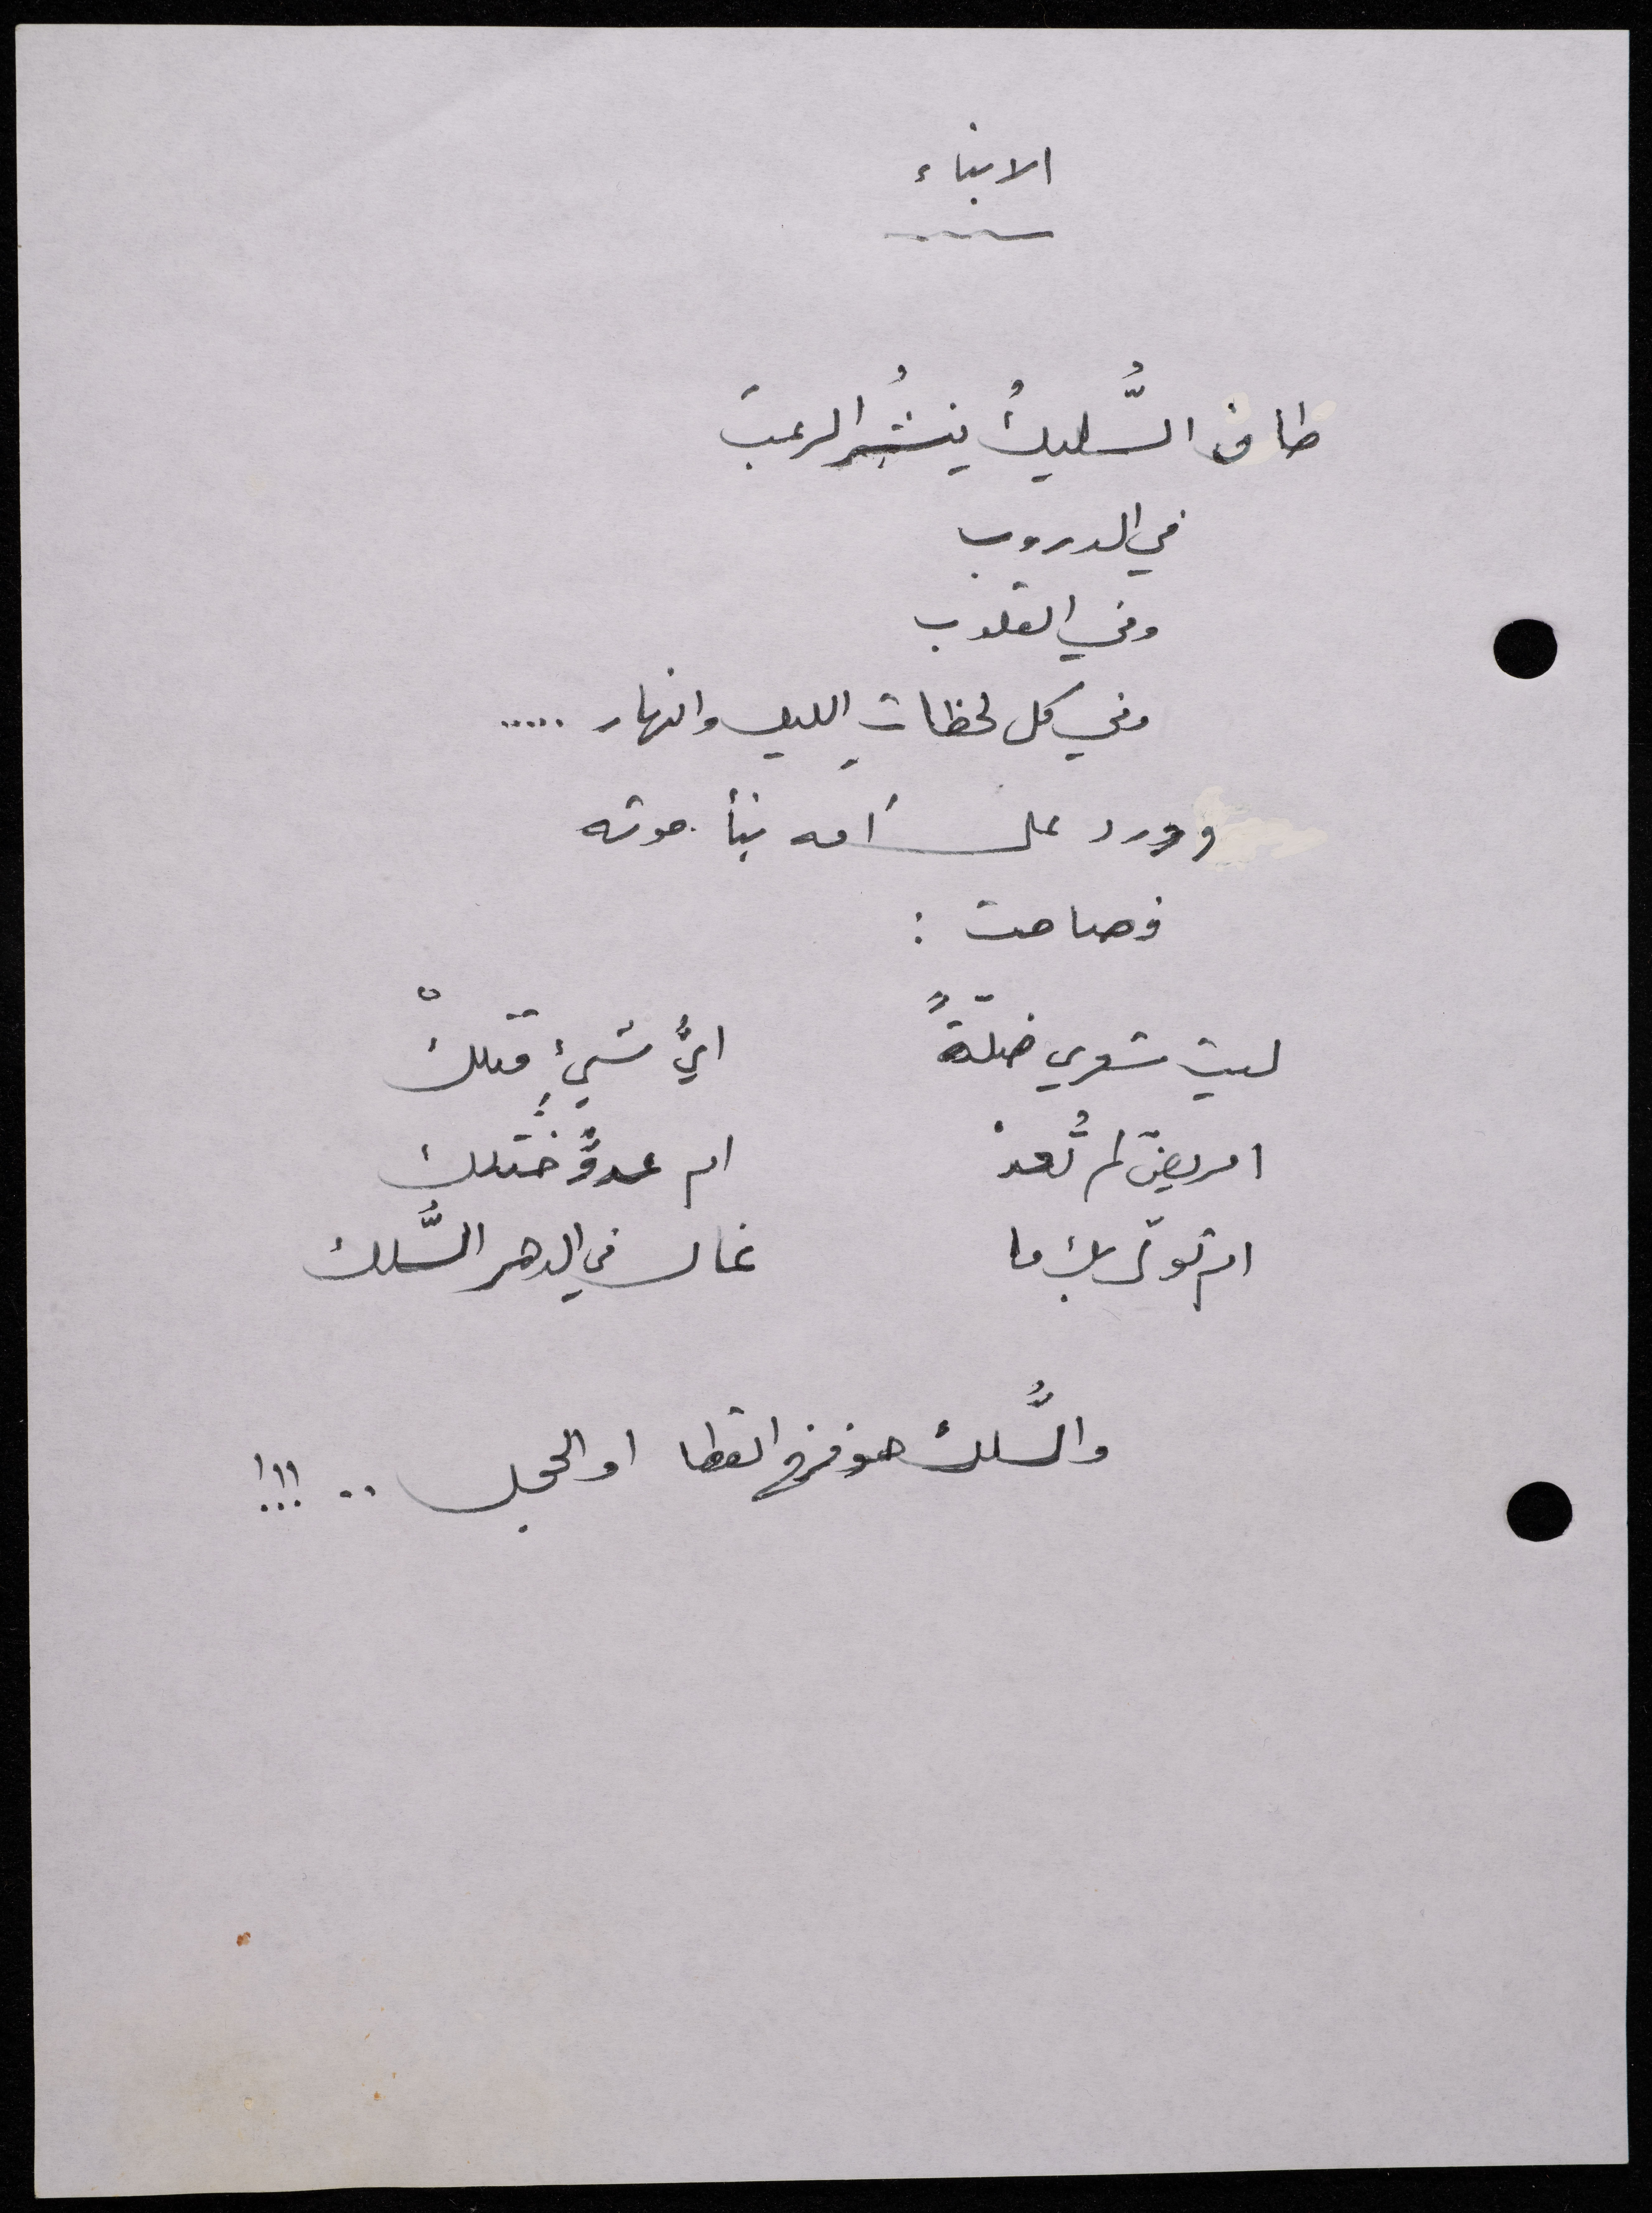 الانباء
طاف السُّليكُ ينشُر الرعبَ
في الدروب
وفي القلوب
وفي كل لحظاتِ الليل والنهار .....
وورد على أمه نبأ موته
فصاحت :
ليت شعري ضلّةً ايُّ شيءٍ قتلكْ
امريضٌ لم تُعدْ ام عدوٌّ ختلك
ام تولّى بك ما غال في الدهر السُّلك
والسُّلك هو فرخ القطا او الحجل .. !!!